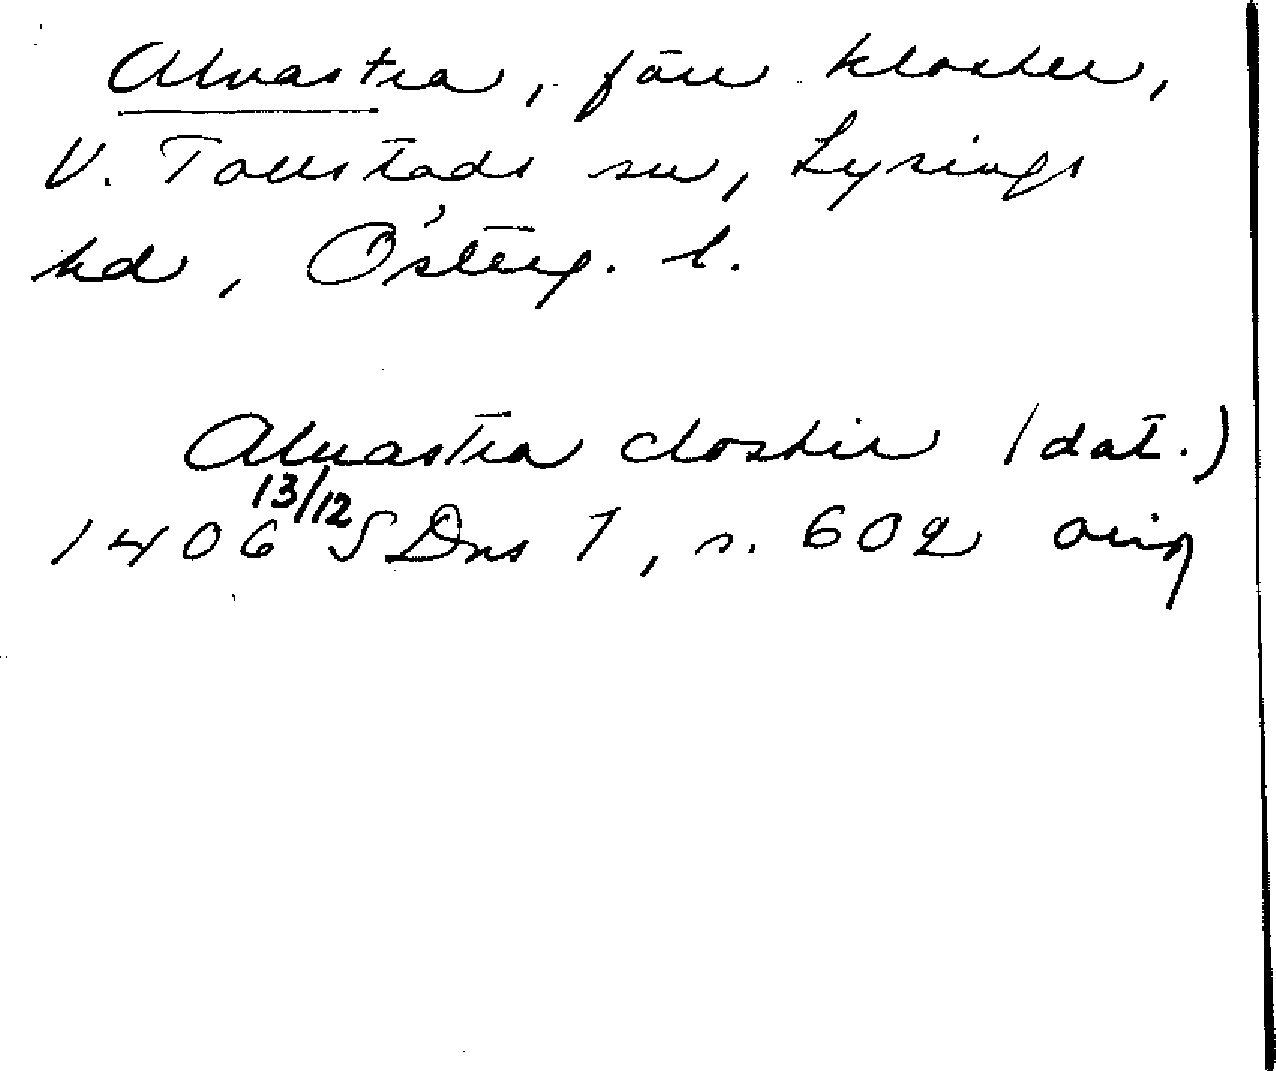 Alvastra, förr kloster,
V. Tollstads sn, Lysings
hd, Österg. l.
Aluastra closter (dat.)
1406 13/12 SDns 1, s. 602 orig